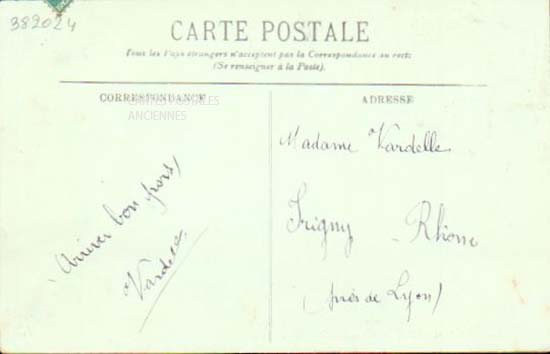 389024
CARTE POSTALE
Tous les Pays étrangers n'acceptent pas la Correspondance au recto
(Se renseigner à la Poste).
CORRESPONDANCE
CARTES POSTALES
ANCIENNES
ADRESSE
Arriver bon
Vardelle
Madame Vardelle
Irigny - Rhône
(près de Lyon)